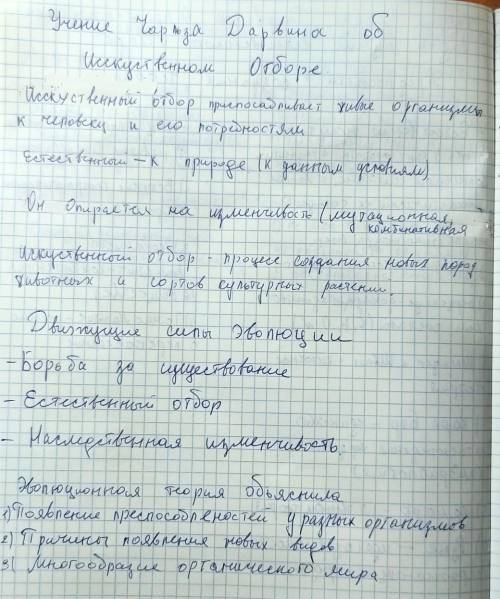 Учение Чарльза Дарвина об
Искуственном Отборе
Исскуственный отбор приспосабливает живые организмы
к человеку и его потребностям
Естественный – к природе (к данным условиям)
Он Опирается на изменчивость (мутационная,
комбинативная
Искуственный отбор - процесс создания новых пород
животных и сортов культурных растении.
Движущие силы эволюции
- Борьба за существование
- Естественный отбор
- Наследственная изменчивость.
Эволюционная теория объяснила
1) Появление преспособленостей у разных организмов
2) Причины появления новых видов
3) Многообразие органического мира